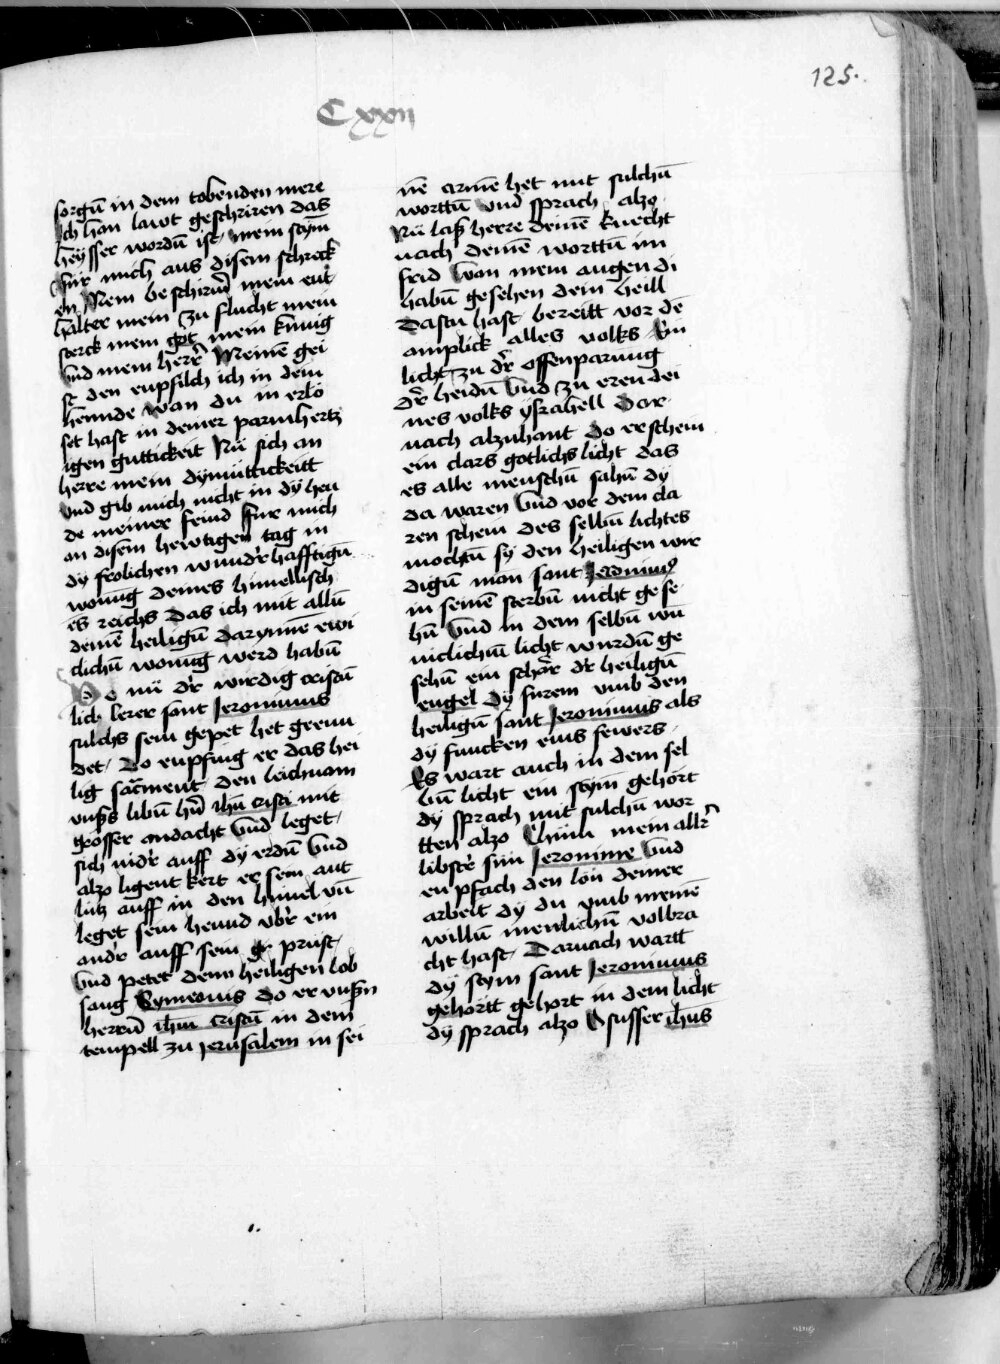 125.
Cxxij
sorgū in dem tobenden mere
Ich han lawt geschriren das
heysser wordū ist mein stym̄
Für mich aus disem schreck
en Mein beschirm̄ mein ent
halter mein zu flucht mein
sterck mein got mein künig
vnd mein herr̄ Meinē gei
st den enpfilch ich in dein
hennde wan du in erlö
set hast in deiner parmhertz
igen guttickeit Nū sich an
herre mein dymuttickeitt
vnd gib mich nicht in dÿ hen
de meiner feind für mich
an disem hewtigen tag in
dy frolichen wund'r hafftigū
wonūg deines himellisch
es reichs das ich mit allū
deinē heiligū darynnē ewi
clichū wonūg werd habū
Do nū d'r wirdig cristū
lich lerer sant Jeronimus
sulchs sein gepet het geenn
det / Do enpfing er das hei
lig sacr̄ment den leichnam
vnsers libū hrn̄ ih̄m cristi mit
grosser andacht vnd leget /
sich nid'r auff dÿ erdū vnd
alzo ligent kert er sein ant
lütz auff in den himel vn̄
leget sein hennd vb'r ein
and'r auff sein prust /
Vnd petet denn heiligen lob
sang Symeonis do er vnsn̄
herrn̄ ih̄m cristū in dem
tempell zu jerusalem in sei
nē armē het mit sulchū
worttū vnd sprach alzo
Nū laß herre deinē knecht
nach deinē worttū im
frid wan mein augen di
habū gesehen dein heill
Dastu hast bereitt vor dē
anplick alles volks Ein
licht zu d'r offenparung
d'r heidū vnd zu eren dei
nes volks ÿsrahell Dar
nach alzuhant do erschein
ein clars gotlichs licht das
es alle menschū sahū dÿ
da waren vnd vor dem cla
ren schein des selbū lichtes
mochtū sÿ den heiligen wir
digū man sant Jeronimū
in seinē sterbū nicht gese
hū vnd in dem selbū wū
niclichū licht wurdū ge
sehū ein schar d'r heiligū
engel dÿ furem vmb den
heiligū sant Jeronimus als
dÿ funcken eins fewers
Es wart auch in dem sel
bū licht ein stym̄ gehört
dÿ sprach mit sulchū wor
tten alzo Chum mein allr̄
libst'r sün Jeronime vnd
enpfach den lön deiner
arbeit dÿ du vmb meinē
willū menlichū volbra
cht hast / Darnach wartt
dÿ stym sant Jeronimus
gehörtt gehort in dem licht
dÿ sprach alzo O susser ih̄us